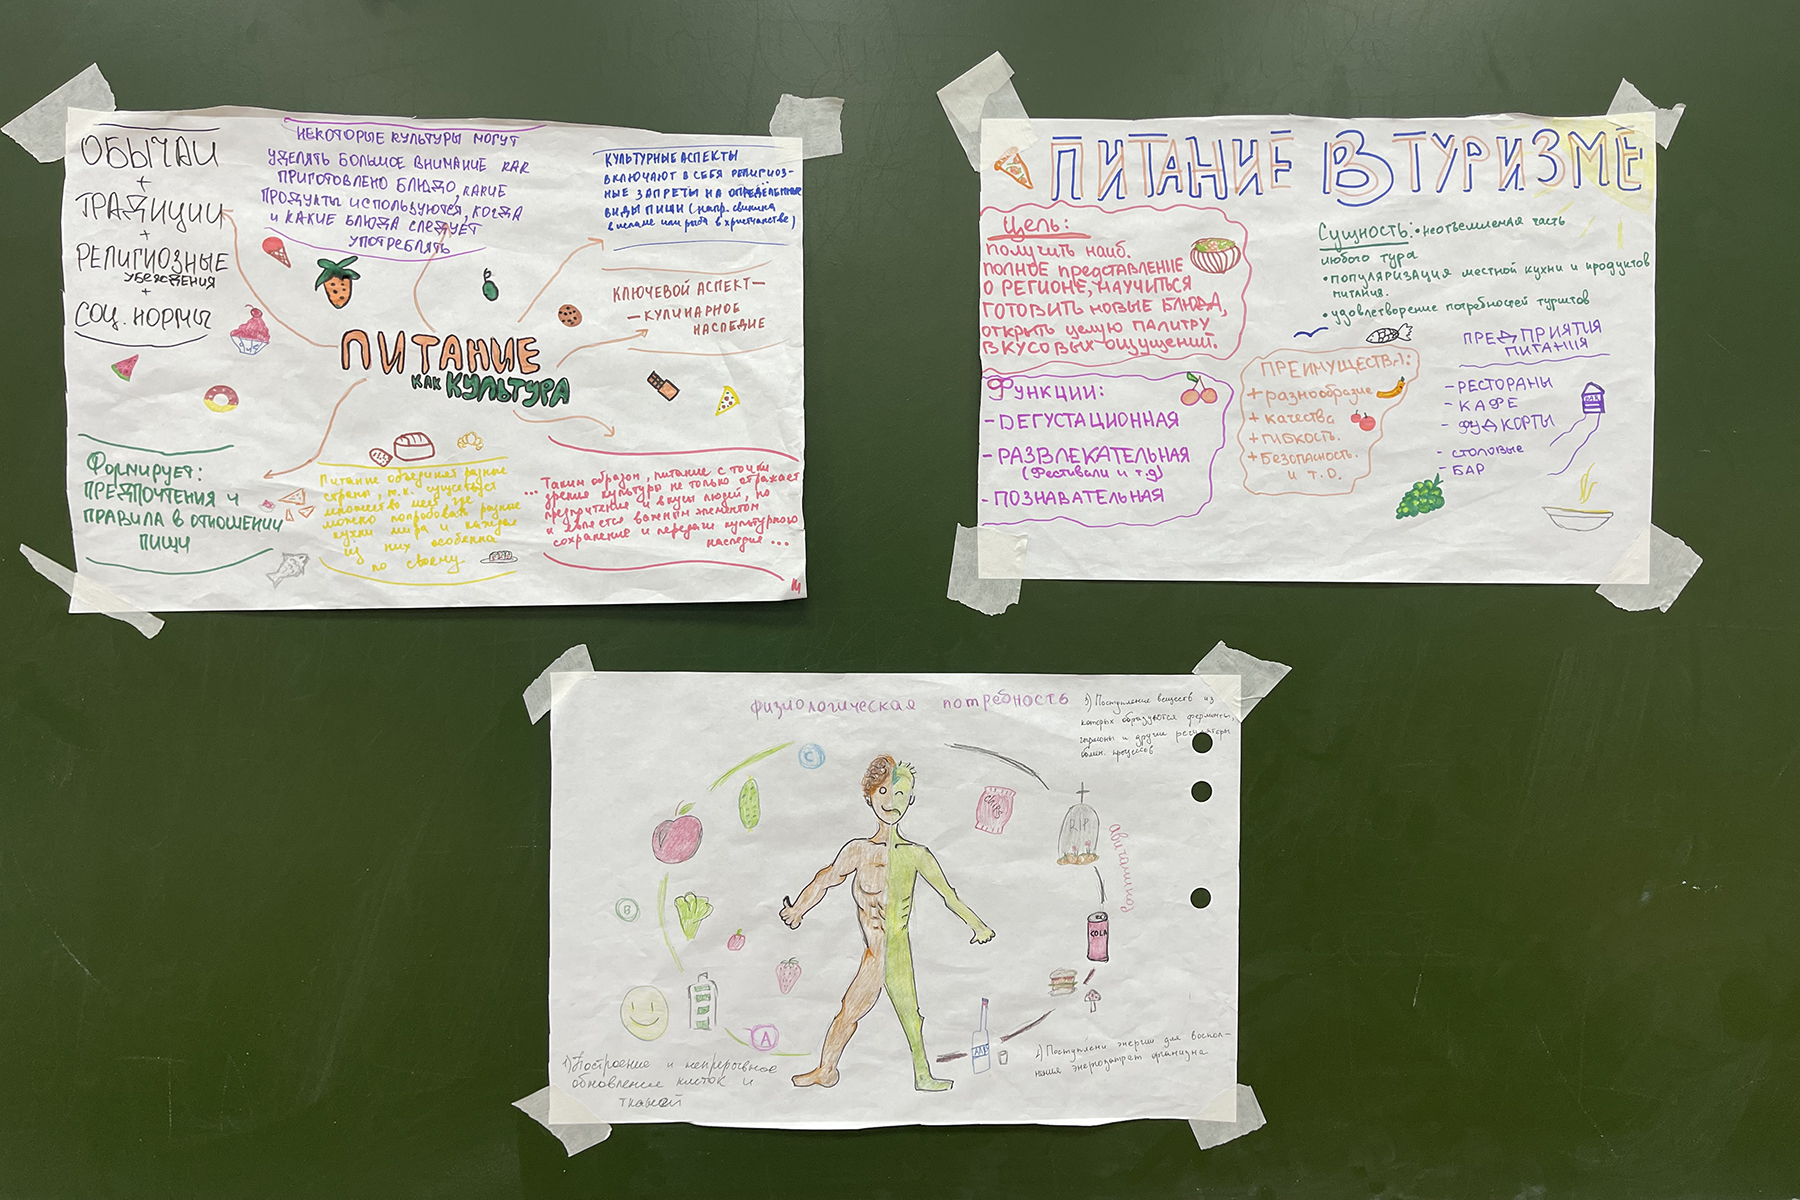 ОБЫЧАИ
+
ТРАДИЦИИ
+
РЕЛИГИОЗНЫЕ
УБЕЖДЕНИЯ
+
СОЦ. НОРМЫ
НЕКОТОРЫЕ КУЛЬТУРЫ МОГУТ
УДЕЛЯТЬ БОЛЬШОЕ ВНИМАНИЕ КАК
ПРИГОТОВЛЕНО БЛЮДО, КАКИЕ
ПРОДУКТЫ ИСПОЛЬЗУЮТСЯ, КОГДА
И КАКИЕ БЛЮДА СЛЕДУЕТ
УПОТРЕБЛЯТЬ
КУЛЬТУРНЫЕ АСПЕКТЫ
ВКЛЮЧАЮТ В СЕБЯ РЕЛИГИОЗ-
НЫЕ ЗАПРЕТЫ НА ОПРЕДЕЛЕННЫЕ
ВИДЫ ПИЩИ (напр. свинина
в исламе или рыба в христианстве)
КЛЮЧЕВОЙ АСПЕКТ—
—КУЛИНАРНОЕ
НАСЛЕДИЕ
ПИТАНИЕ
КАК КУЛЬТУРА
Формирует:
ПРЕДПОЧТЕНИЯ И
ПРАВИЛА В ОТНОШЕНИИ
ПИЩИ
Питание объединяет разные
страны, т.к. существует
множество мест, где
можно попробовать разные
кухни мира и каждая
из них особенна
по своему
... Таким образом, питание с точки
зрения культуры не только отражает
предпочтение и вкусы людей, но
и является важным элементом
сохранение и передачи культурного
наследие ...
ПИТАНИЕ В ТУРИЗМЕ
Цель:
получить наиб.
полное представление
о регионе, научиться
готовить новые блюда,
открыть целую палитру
вкусовых ощущений.
Функции:
- ДЕГУСТАЦИОННАЯ
- РАЗВЛЕКАТЕЛЬНАЯ
(Фестивали и т.д)
- ПОЗНАВАТЕЛЬНАЯ
Сущность: • неотъемлемая часть
любого тура
• популяризация местной кухни и продуктов
питания.
• удовлетворение потребностей туристов
ПРЕИМУЩЕСТВА:
+ разнообразие
+ качества
+ гибкость.
+ Безопасность.
и т.о.
ПРЕДПРИЯТИЯ
ПИТАНИЯ
- РЕСТОРАНЫ
- КАФЕ
- ФУДКОРТЫ
- СТОЛОВЫЕ
- БАР
физиологическая потребность
3) Поступление веществ из
которых образуются ферменты,
гормоны и другие регуляторы
процессов
C
B
A
CHIPS
RIP
авитаминоз
COLA
1) Построение и непрерывное
обновление клеток и
тканей
2) Поступлени энергии для воспол-
нения энергозатрат организма